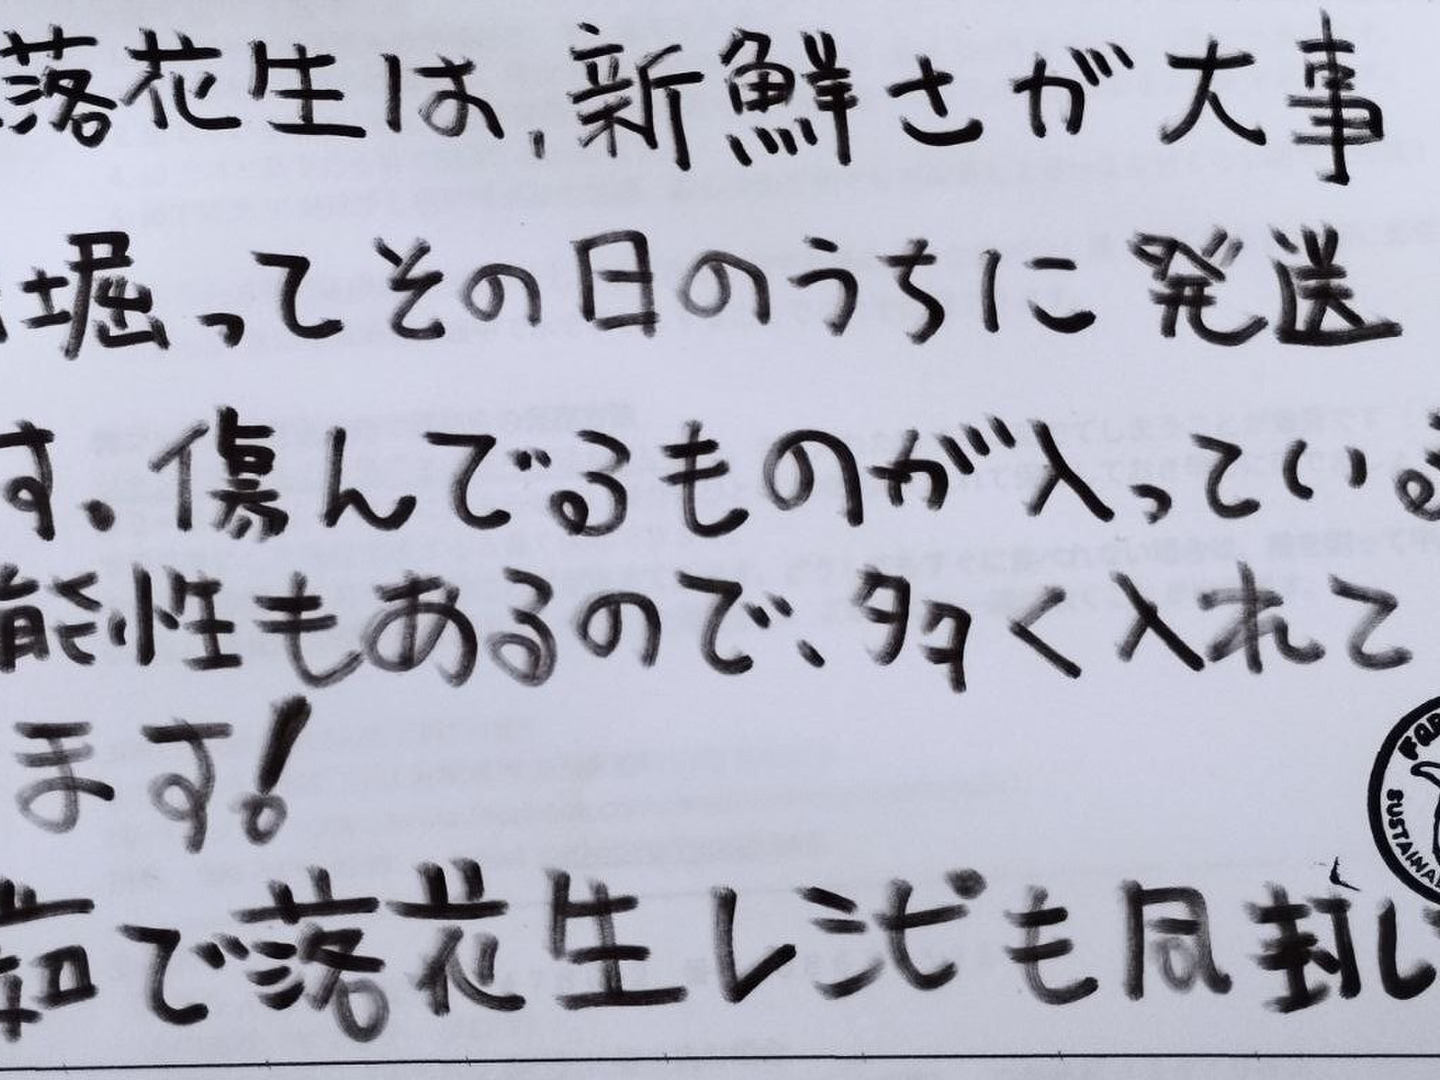 落花生は、新鮮さが大事
堀ってその日のうちに発送
す。傷んでるものが入っている
能性もあるので、多く入れて
ます!
茹で落花生レシピも同封し
SUSTAINA